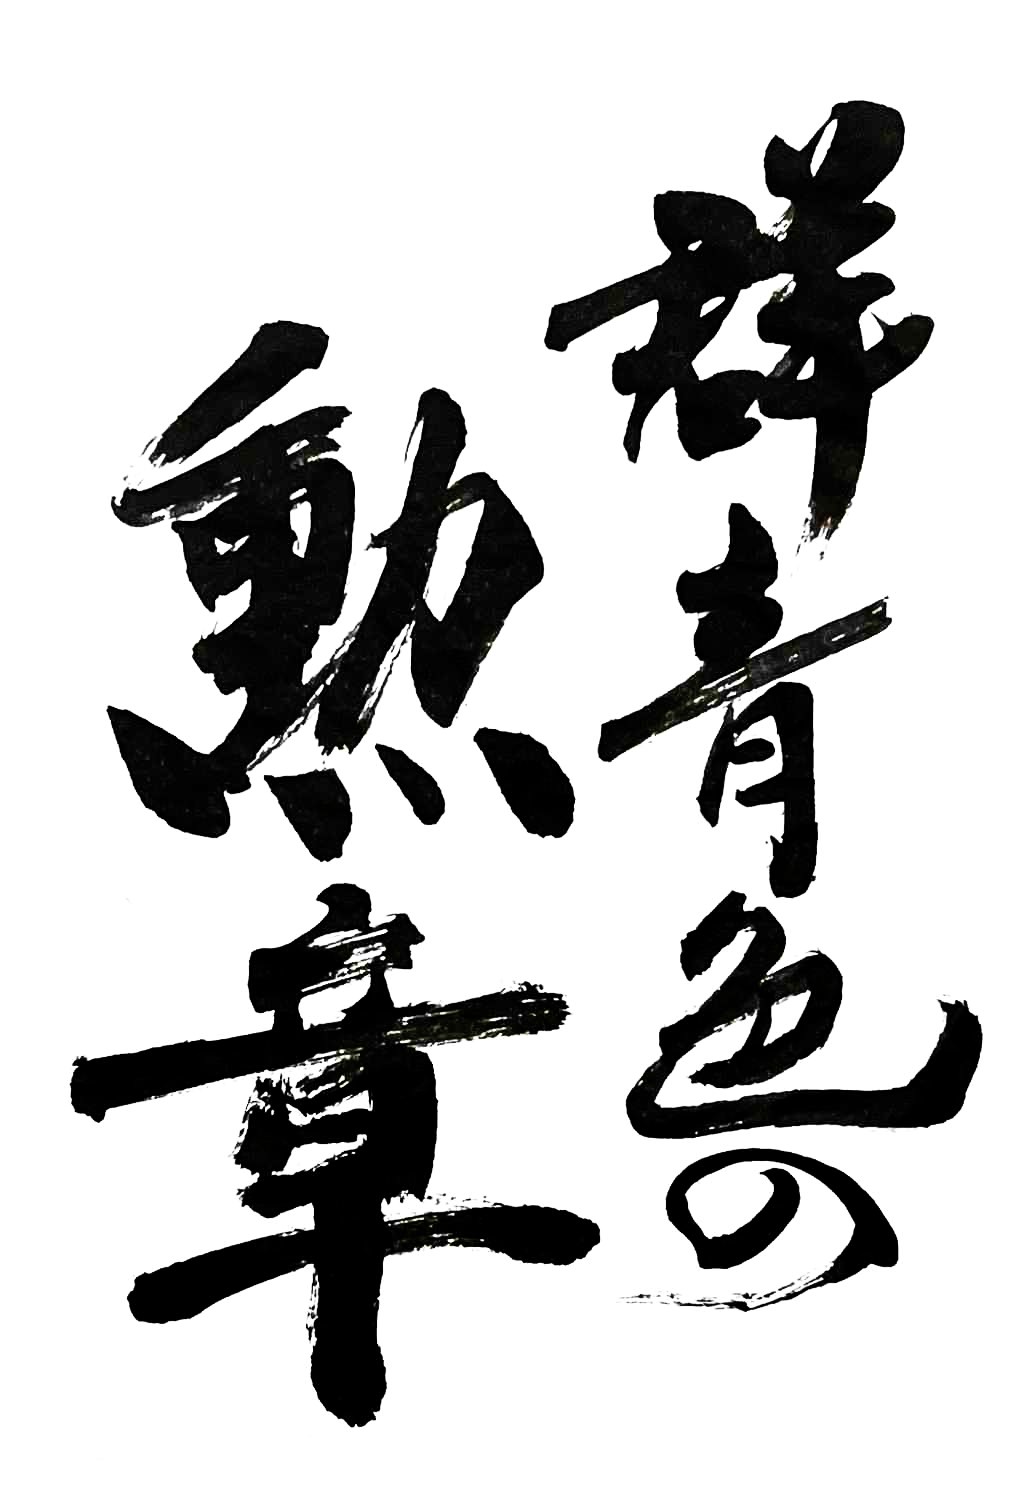 群青色の
勲章